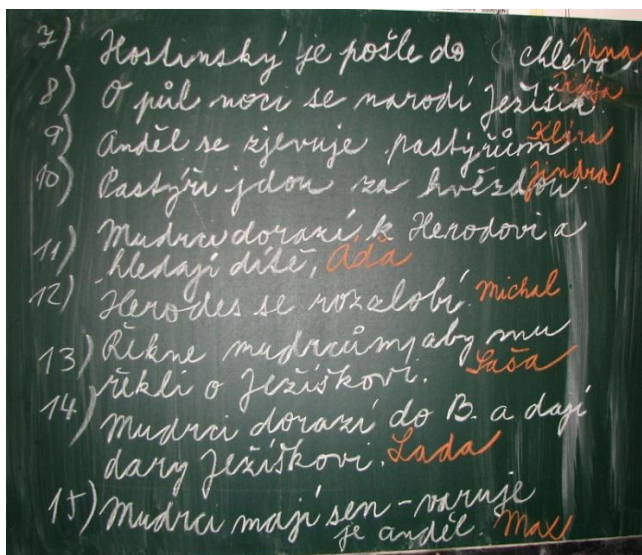 7) Hostinský je pošle do chléva Nina
8) O půl noci se narodí Ježíšek.
9) Anděl se zjevuje pastýřům Klára
10) Pastýři jdou za hvězdou. Jindra
Mudrci dorazí k Herodovi a
11) hledají dítě, Áďa
12) Herodes se rozzlobí. Michal
13) Řekne mudrcům, aby mu
řekli o Ježíškovi. Saša
14) Mudrci dorazí do B. a dají
dary Ježíškovi. Lada
15) Mudrci mají sen - varuje
je anděl. Max